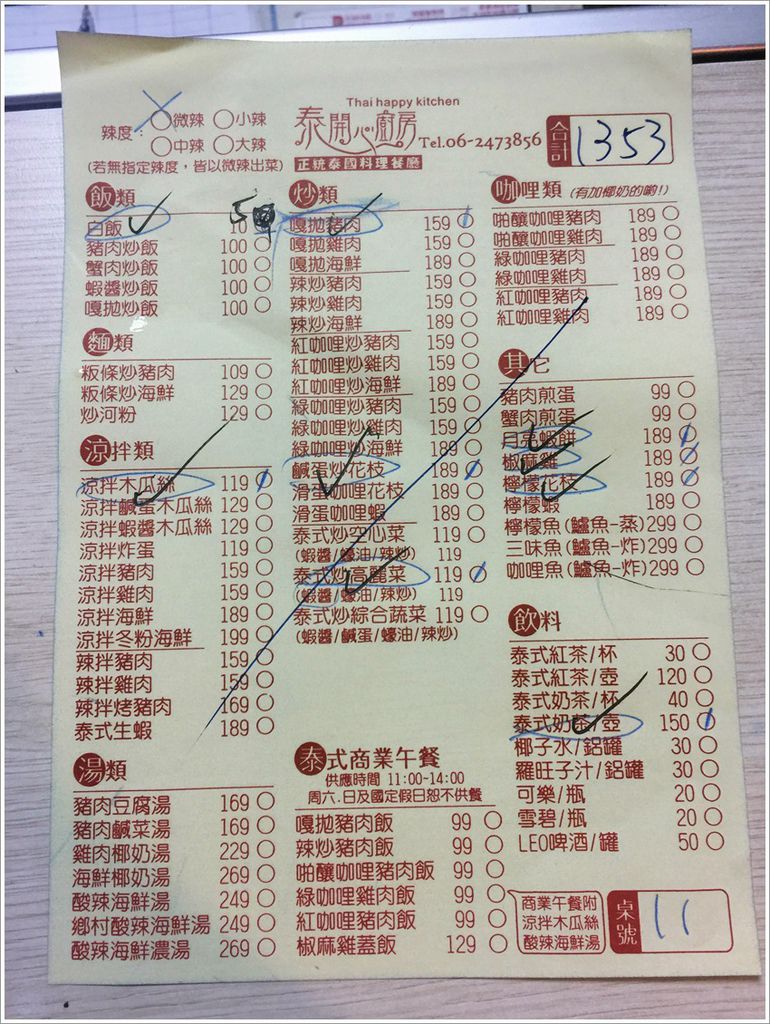 Thai happy kitchen
泰開心廚房
正統泰國料理餐廳
Tel.06-2473856
合計 1353
辣度：○微辣 ○小辣
○中辣 ○大辣
(若無指定辣度，皆以微辣出菜)
飯類
白飯 10 5
豬肉炒飯 100
蟹肉炒飯 100
蝦醬炒飯 100
嘎拋炒飯 100
麵類
粄條炒豬肉 109
粄條炒海鮮 129
炒河粉 129
涼拌類
涼拌木瓜絲 119
涼拌鹹蛋木瓜絲 129
涼拌蝦醬木瓜絲 129
涼拌炸蛋 119
涼拌豬肉 159
涼拌雞肉 159
涼拌海鮮 189
涼拌冬粉海鮮 199
辣拌豬肉 159
辣拌雞肉 159
辣拌烤豬肉 169
泰式生蝦 189
湯類
豬肉豆腐湯 169
豬肉鹹菜湯 169
雞肉椰奶湯 229
海鮮椰奶湯 269
酸辣海鮮湯 249
鄉村酸辣海鮮湯 249
酸辣海鮮濃湯 269
炒類
嘎拋豬肉 159
嘎拋雞肉 159
嘎拋海鮮 189
辣炒豬肉 159
辣炒雞肉 159
辣炒海鮮 189
紅咖哩炒豬肉 159
紅咖哩炒雞肉 159
紅咖哩炒海鮮 189
綠咖哩炒豬肉 159
綠咖哩炒雞肉 159
綠咖哩炒海鮮 189
鹹蛋炒花枝 189
滑蛋咖哩花枝 189
滑蛋咖哩蝦 189
泰式炒空心菜 119
(蝦醬/蠔油/辣炒) 119
泰式炒高麗菜 119
(蝦醬/蠔油/辣炒) 119
泰式炒綜合蔬菜 119
(蝦醬/鹹蛋/蠔油/辣炒)
泰式商業午餐
供應時間 11:00-14:00
周六.日及國定假日恕不供餐
嘎拋豬肉飯 99
辣炒豬肉飯 99
啪釀咖哩豬肉飯 99
綠咖哩雞肉飯 99
紅咖哩豬肉飯 99
椒麻雞蓋飯 129
咖哩類 (有加椰奶的喲!)
啪釀咖哩豬肉 189
啪釀咖哩雞肉 189
綠咖哩豬肉 189
綠咖哩雞肉 189
紅咖哩豬肉 189
紅咖哩雞肉 189
其它
豬肉煎蛋 99
蟹肉煎蛋 99
月亮蝦餅 189
椒麻雞 189
檸檬花枝 189
檸檬蝦 189
檸檬魚(鱸魚-蒸)299
三味魚(鱸魚-炸)299
咖哩魚(鱸魚-炸)299
飲料
泰式紅茶/杯 30
泰式紅茶/壺 120
泰式奶茶/杯 40
泰式奶茶/壺 150
椰子水/鋁罐 30
羅旺子汁/鋁罐 30
可樂/瓶 20
雪碧/瓶 20
LEO啤酒/罐 50
商業午餐附
涼拌木瓜絲
酸辣海鮮湯
桌號 11